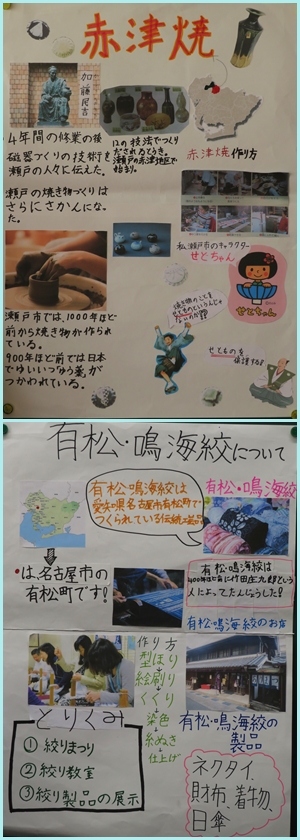 赤津焼
加藤民吉
4年間の修業の後
磁器づくりの技術を
瀬戸の人々に伝えた。
瀬戸の焼き物づくりは
さらにさかんになっ
た。
12の技法でつくり
だされるとうき。
瀬戸の赤津地区で
始まり。
赤津焼作り方
私、瀬戸市のキャラクター
せとちゃん
せとちゃん
瀬戸市では、1000年ほど
前から焼き物が作られ
ている。
900年ほど前では日本
でゆいいつ「ゆう薬」が
つかわれている。
せとものを
有松・鳴海絞について
有松・鳴海絞は
愛知県名古屋市有松町で
つくられている伝統工芸品
有松・鳴海絞
●は、名古屋市の
有松町です!
有松・鳴海絞は
400年ほど前に竹田庄九郎という
人によってたんじょうした!
有松・鳴海絞のお店
作り方
型ほり
絵刷り
くくり
染色
糸ぬき
仕上げ
とりくみ
①絞りまつり
②絞り教室
③絞り製品の展示
有松・鳴海絞の
製品
ネクタイ、
財布、着物、
日傘